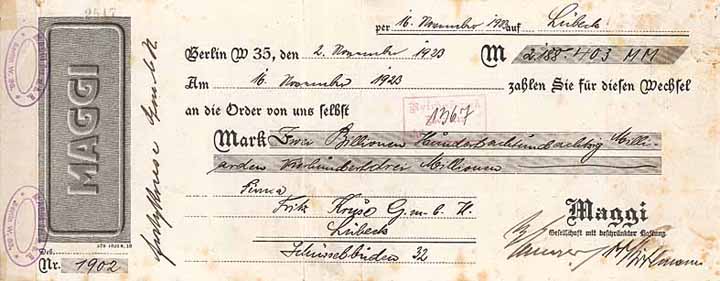 2517
per 16. November 1923 auf Lübeck
Berlin W 35, den 2. November 1923 M 2.188.403 MM
Am 16. November 1923 zahlen Sie für diesen Wechsel
an die Order von uns selbst
1367
Mark Zwei Billionen Hundertachtundachtzig Milli-
arden Vierhundertdrei Millionen
Firma
Fritz Kruse G.m.b.H.
Lübeck
Schüsselbuden 32
MAGGI
Nr. 1902
Maggi
Gesellschaft mit beschränkter Haftung.